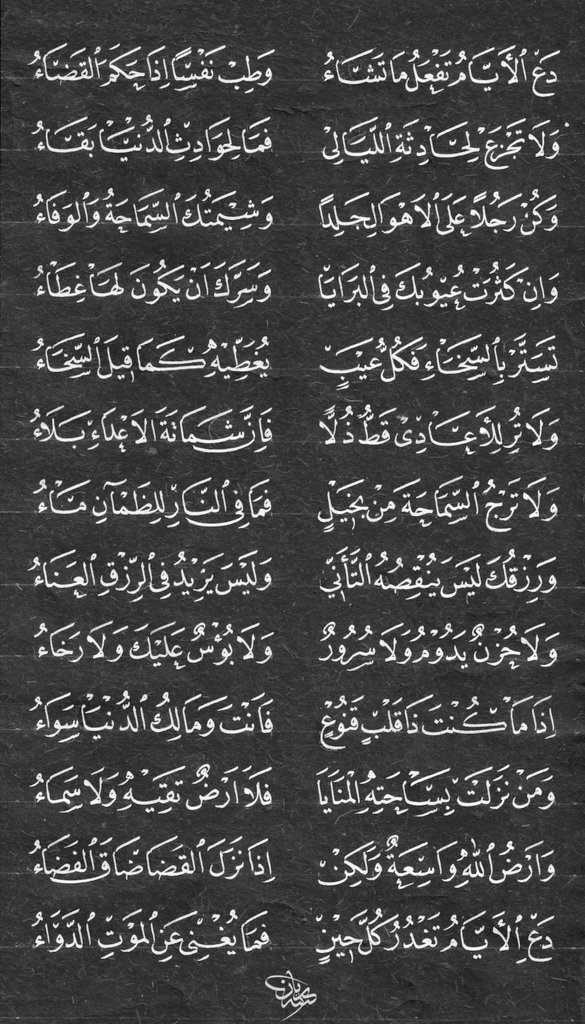 دَعِ الْأَيَّامُ تَفْعَلُ مَا تَشَاءُ وَطِبْ نَفْسًا إِذَا حَكَمَ الْقَضَاءُ
وَلَا تَجْزَعْ لِحَادِثَةِ اللَّيَالِي فَمَا لِحَوَادِثِ الدُّنْيَا بَقَاءُ
وَكُنْ رَجُلًا عَلَى الْأَهْوَالِ جَلْدًا وَشِيمَتُكَ السَّمَاحَةُ وَالْوَفَاءُ
وَإِنْ كَثُرَتْ عُيُوبُكَ فِي الْبَرَايَا وَسَرَّكَ أَنْ يَكُونَ لَهَا غِطَاءُ
تَسَتَّرْ بِالسَّخَاءِ فَكُلُّ عَيْبٍ يُغَطِّيهِ كَمَا قِيلَ السَّخَاءُ
وَلَا تُرِ لِلْأَعَادِي قَطُّ ذُلًّا فَإِنَّ شَمَاتَةَ الْأَعْدَاءِ بَلَاءُ
وَلَا تَرْجُ السَّمَاحَةَ مِنْ بَخِيلٍ فَمَا فِي النَّارِ لِلظَّمْآنِ مَاءُ
وَرِزْقُكَ لَيْسَ يُنْقِصُهُ التَّأَنِّي وَلَيْسَ يَزِيدُ فِي الرِّزْقِ الْعَنَاءُ
وَلَا حُزْنٌ يَدُومُ وَلَا سُرُورٌ وَلَا بُؤْسٌ عَلَيْكَ وَلَا رَخَاءُ
إِذَا مَا كُنْتَ ذَا قَلْبٍ قَنُوعٍ فَأَنْتَ وَمَالِكُ الدُّنْيَا سَوَاءُ
وَمَنْ نَزَلَتْ بِسَاحَتِهِ الْمَنَايَا فَلَا أَرْضٌ تَقِيهِ وَلَا سَمَاءُ
وَأَرْضُ اللهِ وَاسِعَةٌ وَلَكِنْ إِذَا نَزَلَ الْقَضَا ضَاقَ الْفَضَاءُ
دَعِ الْأَيَّامُ تَغْدُرُ كُلَّ حِينٍ فَمَا يُغْنِي عَنِ الْمَوْتِ الدَّوَاءُ